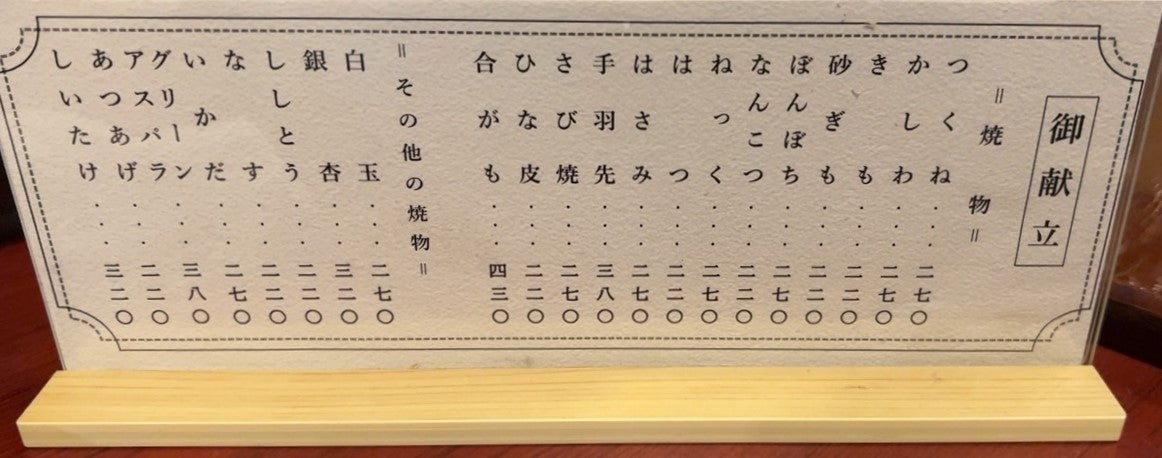 御献立
=焼物=
つくね・・・二七〇
かしわ・・・二七〇
きも・・・二二〇
砂ぎも・・・二二〇
ぼんぼち・・・二七〇
なんこつ・・・二二〇
ねっく・・・二七〇
はつ・・・二二〇
はさみ・・・二七〇
手羽先・・・三八〇
さび焼・・・二七〇
ひな皮・・・二二〇
合がも・・・四三〇
=その他の焼物=
白玉・・・二七〇
銀杏・・・三二〇
ししとう・・・二二〇
なす・・・二二〇
いかだ・・・二七〇
グリーンアスパラ・・・三八〇
あつあげ・・・二二〇
しいたけ・・・三二〇